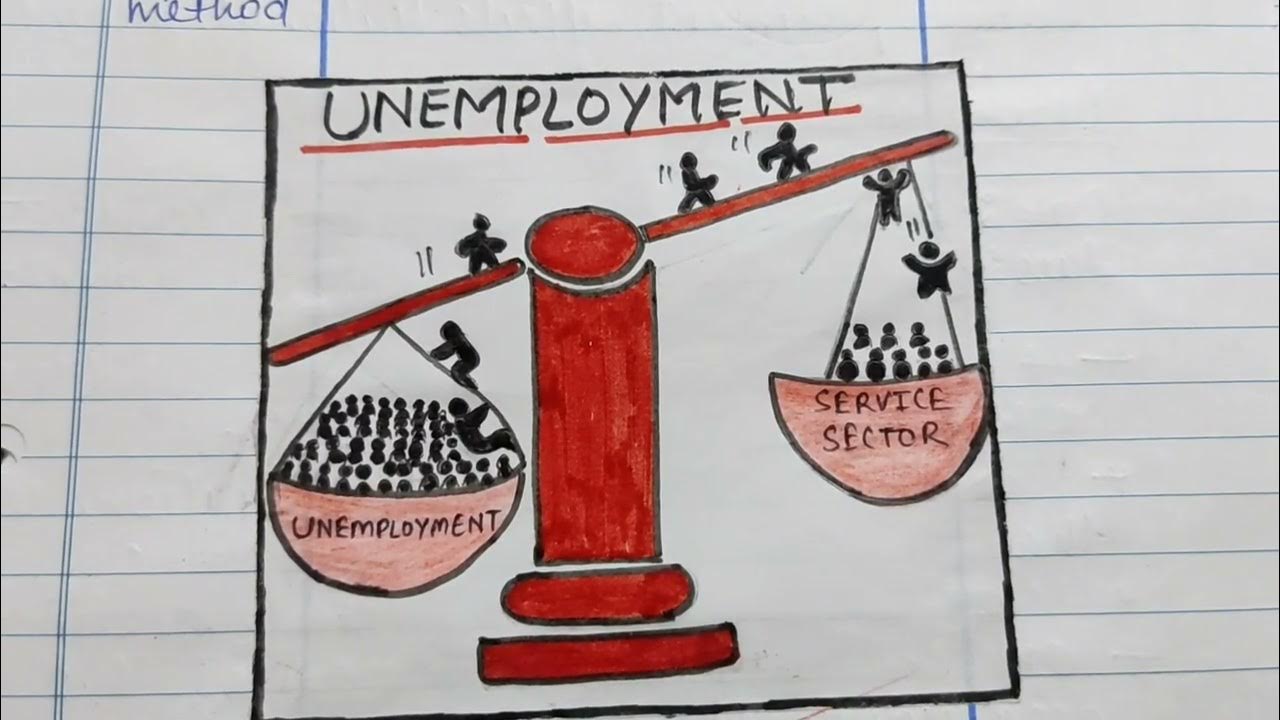 method
UNEMPLOYMENT
SERVICE
SECTOR
UNEMPLOYMENT